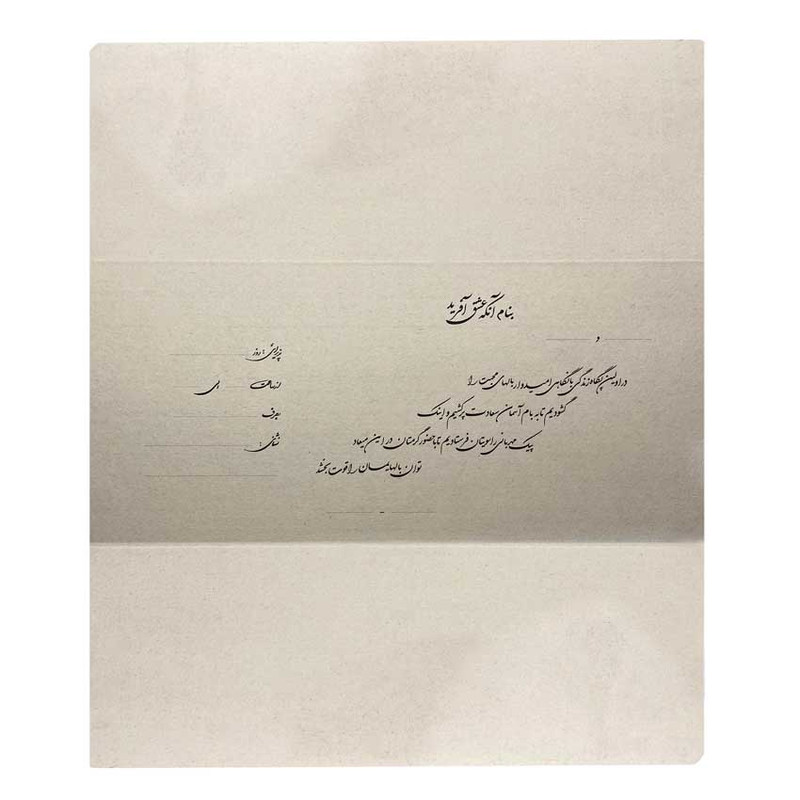 بنام آنکه عشق آفرید
و
در اولین پگاه زندگی با نگاهی امیدوار بالهای محبت را
گشودیم تا به بام آسمان سعادت پر کشیم و اینک
پیک مهربانی را سویتان فرستادیم تا حضور گرمتان در این میعاد
توان بالهایمان را قوت بخشد
-
پذیرایی : روز
از ساعت الی
بصرف
نشانی :